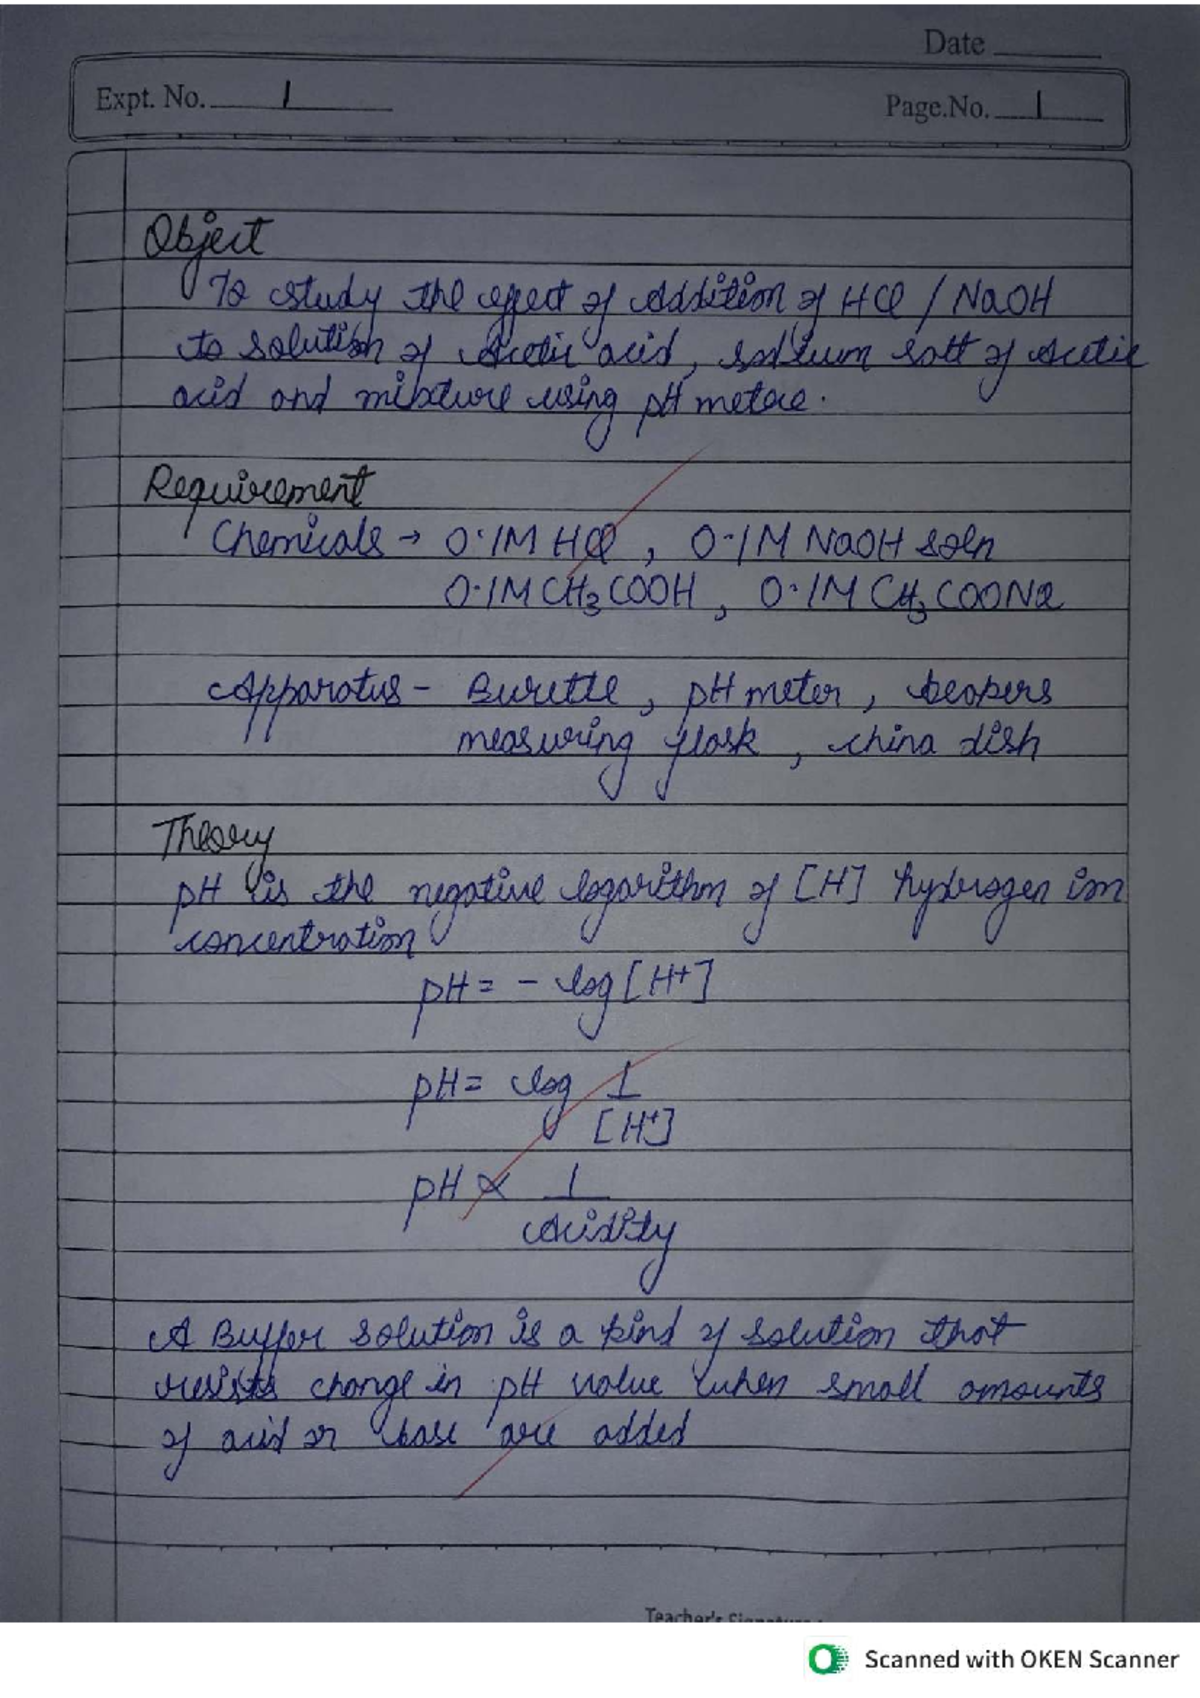 Date
Expt. No. 1
Page.No. 1
Object
To study the effect of addition of HCl / NaOH
to solution of Acetic acid, sodium salt of Acetic
acid and mixture using pH metre.
Requirement
Chemicals → 0.1M HCl , 0.1M NaOH soln
0.1M CH3COOH , 0.1M CH3COONa
Apparatus - Burette , pH meter , beapers
measuring flask , china dish
Theory
pH is the negative logarithm of [H] hydrogen ion
concentration
pH = - log [H+]
pH = log 1
[H+]
pH ∝ 1
Acidity
A Buffer solution is a kind of solution that
resists change in pH value when small amounts
of acid or base are added
Teacher's Signature :
Scanned with OKEN Scanner